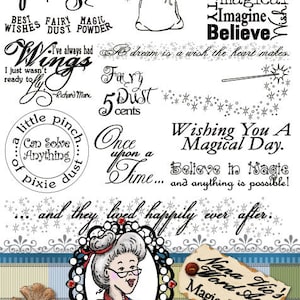 magical
Imagine
Believe
BEST WISHES
FAIRY DUST
MAGIC POWDER
I've always had
Wings
I just wasn't
ready to fly
Richard Marx
A dream is a wish the heart makes.
Fairy
Dust
5 cents
a little pinch...
Can Solve
Anything
of pixie dust
Once
upon a
Time...
Wishing You A
Magical Day.
Believe in Magic
and anything is possible!
... and they lived happily ever after.